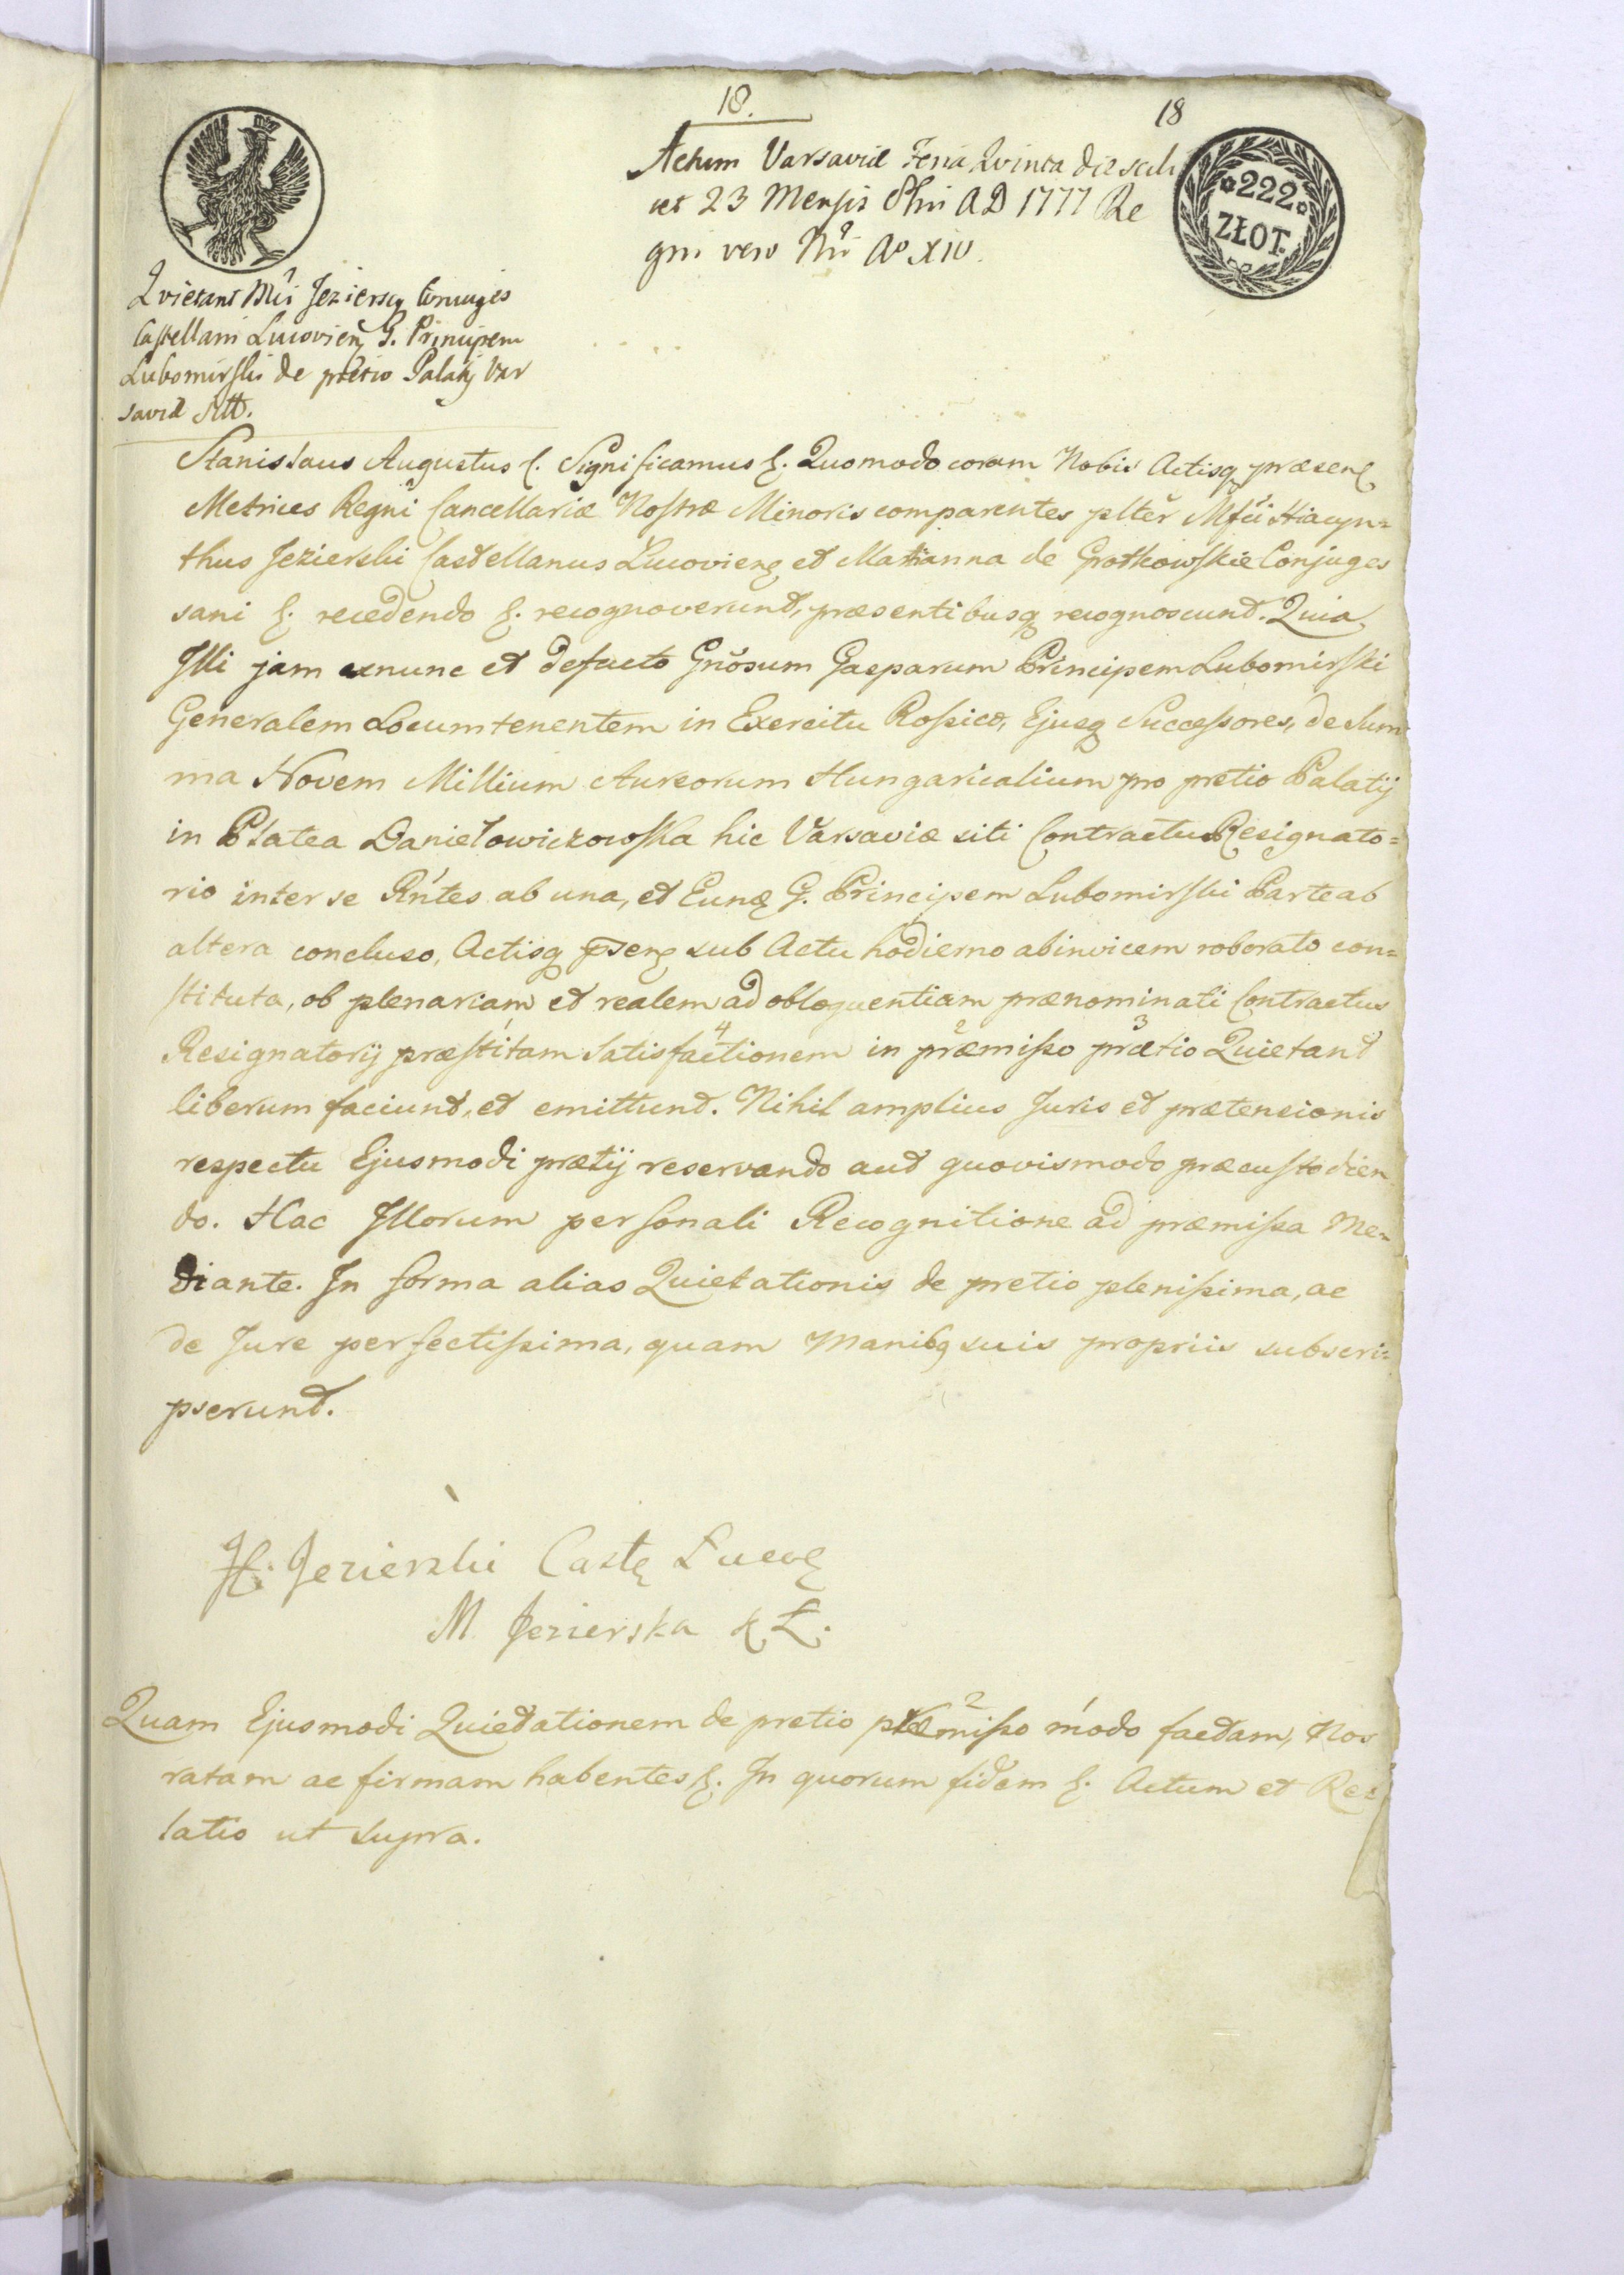 18.
18
Actum Varsaviæ Feria Qvinta die scili
cet 23 Mensis Xbri AD 1777 Re
gni vero Nri Aº XIV.
*222*
ZŁOT.
Qvietant Mci Jezierscy Conjuges
Castellani Lucovien G. Principem
Lubomirski de prætio Palatij Var
saviæ sitt.
Stanislaus Augustus &. Significamus &. Quomodo coram Nobis Actisq præsen
Metrices Regni Cancellariæ Nostræ Minoris comparentes plter Mfci Hiacyn=
thus Jezierski Castellanus Lucovien et Marianna de Grotkowskie Conjuges
sani &. recedendo &. recognoverunt, præsentibusq recognoscunt. Quia
Illi jam exnunc et defacto Gnosum Gasparum Principem Lubomirski
Generalem Locumtenentem in Exercitu Rossico, Ejusq Successores, de Sum
ma Novem Millium Aureorum Hungaricalium pro pretio Palatij
in Platea Daniełowiczowska hic Varsaviæ siti Contractu Resignato=
rio inter se Rntes ab una, et Eund G. Principem Lubomirski Parte ab
altera concluso, Actisq psen sub Actu hodierno abinvicem roborato con=
stituta, ob plenariam et realem ad obloquentiam prænominati Contractus
Resignatorij præstitam Satisfactionem in præmisso prætio Quietant
liberum faciunt, et emittunt. Nihil amplius Juris et prætensionis
respectu Ejusmodi prætij reservando aut quovismodo præcustodien
do. Hac Illorum personali Recognitione ad præmissa Me=
diante. In forma alias Quietationis de pretio plenissima, ac
de Jure perfectissima, quam Manibq suis propriis subscri=
pserunt.
H: Jezierski Caste Łucov
M Jezierska K Ł.
Quam Ejusmodi Quietationem de pretio præmisso modo factam, Nos
ratam ac firmam habentes &. In quorum fidem &. Actum et Re=
latio ut supra.